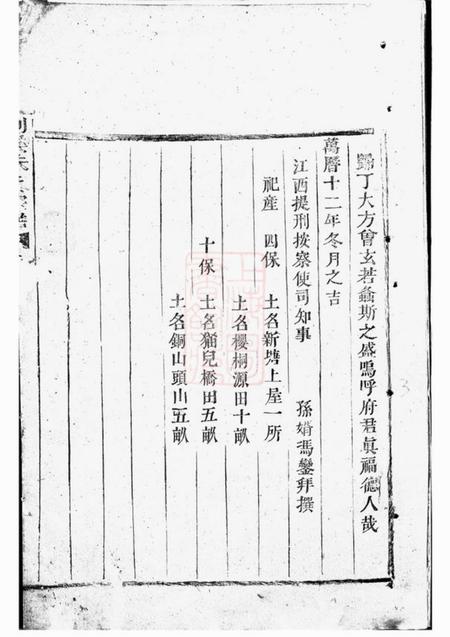 歸丁大方曾玄若螽斯之盛嗚呼府君眞福德人哉
萬曆十二年冬月之吉
江西提刑按察使司知事 孫婿馮鑾拜撰
祀産 四保 土名新塘上屋一所
土名櫻桐源田十畝
十保 土名貓兒橋田五畝
土名銅山頭山五畝